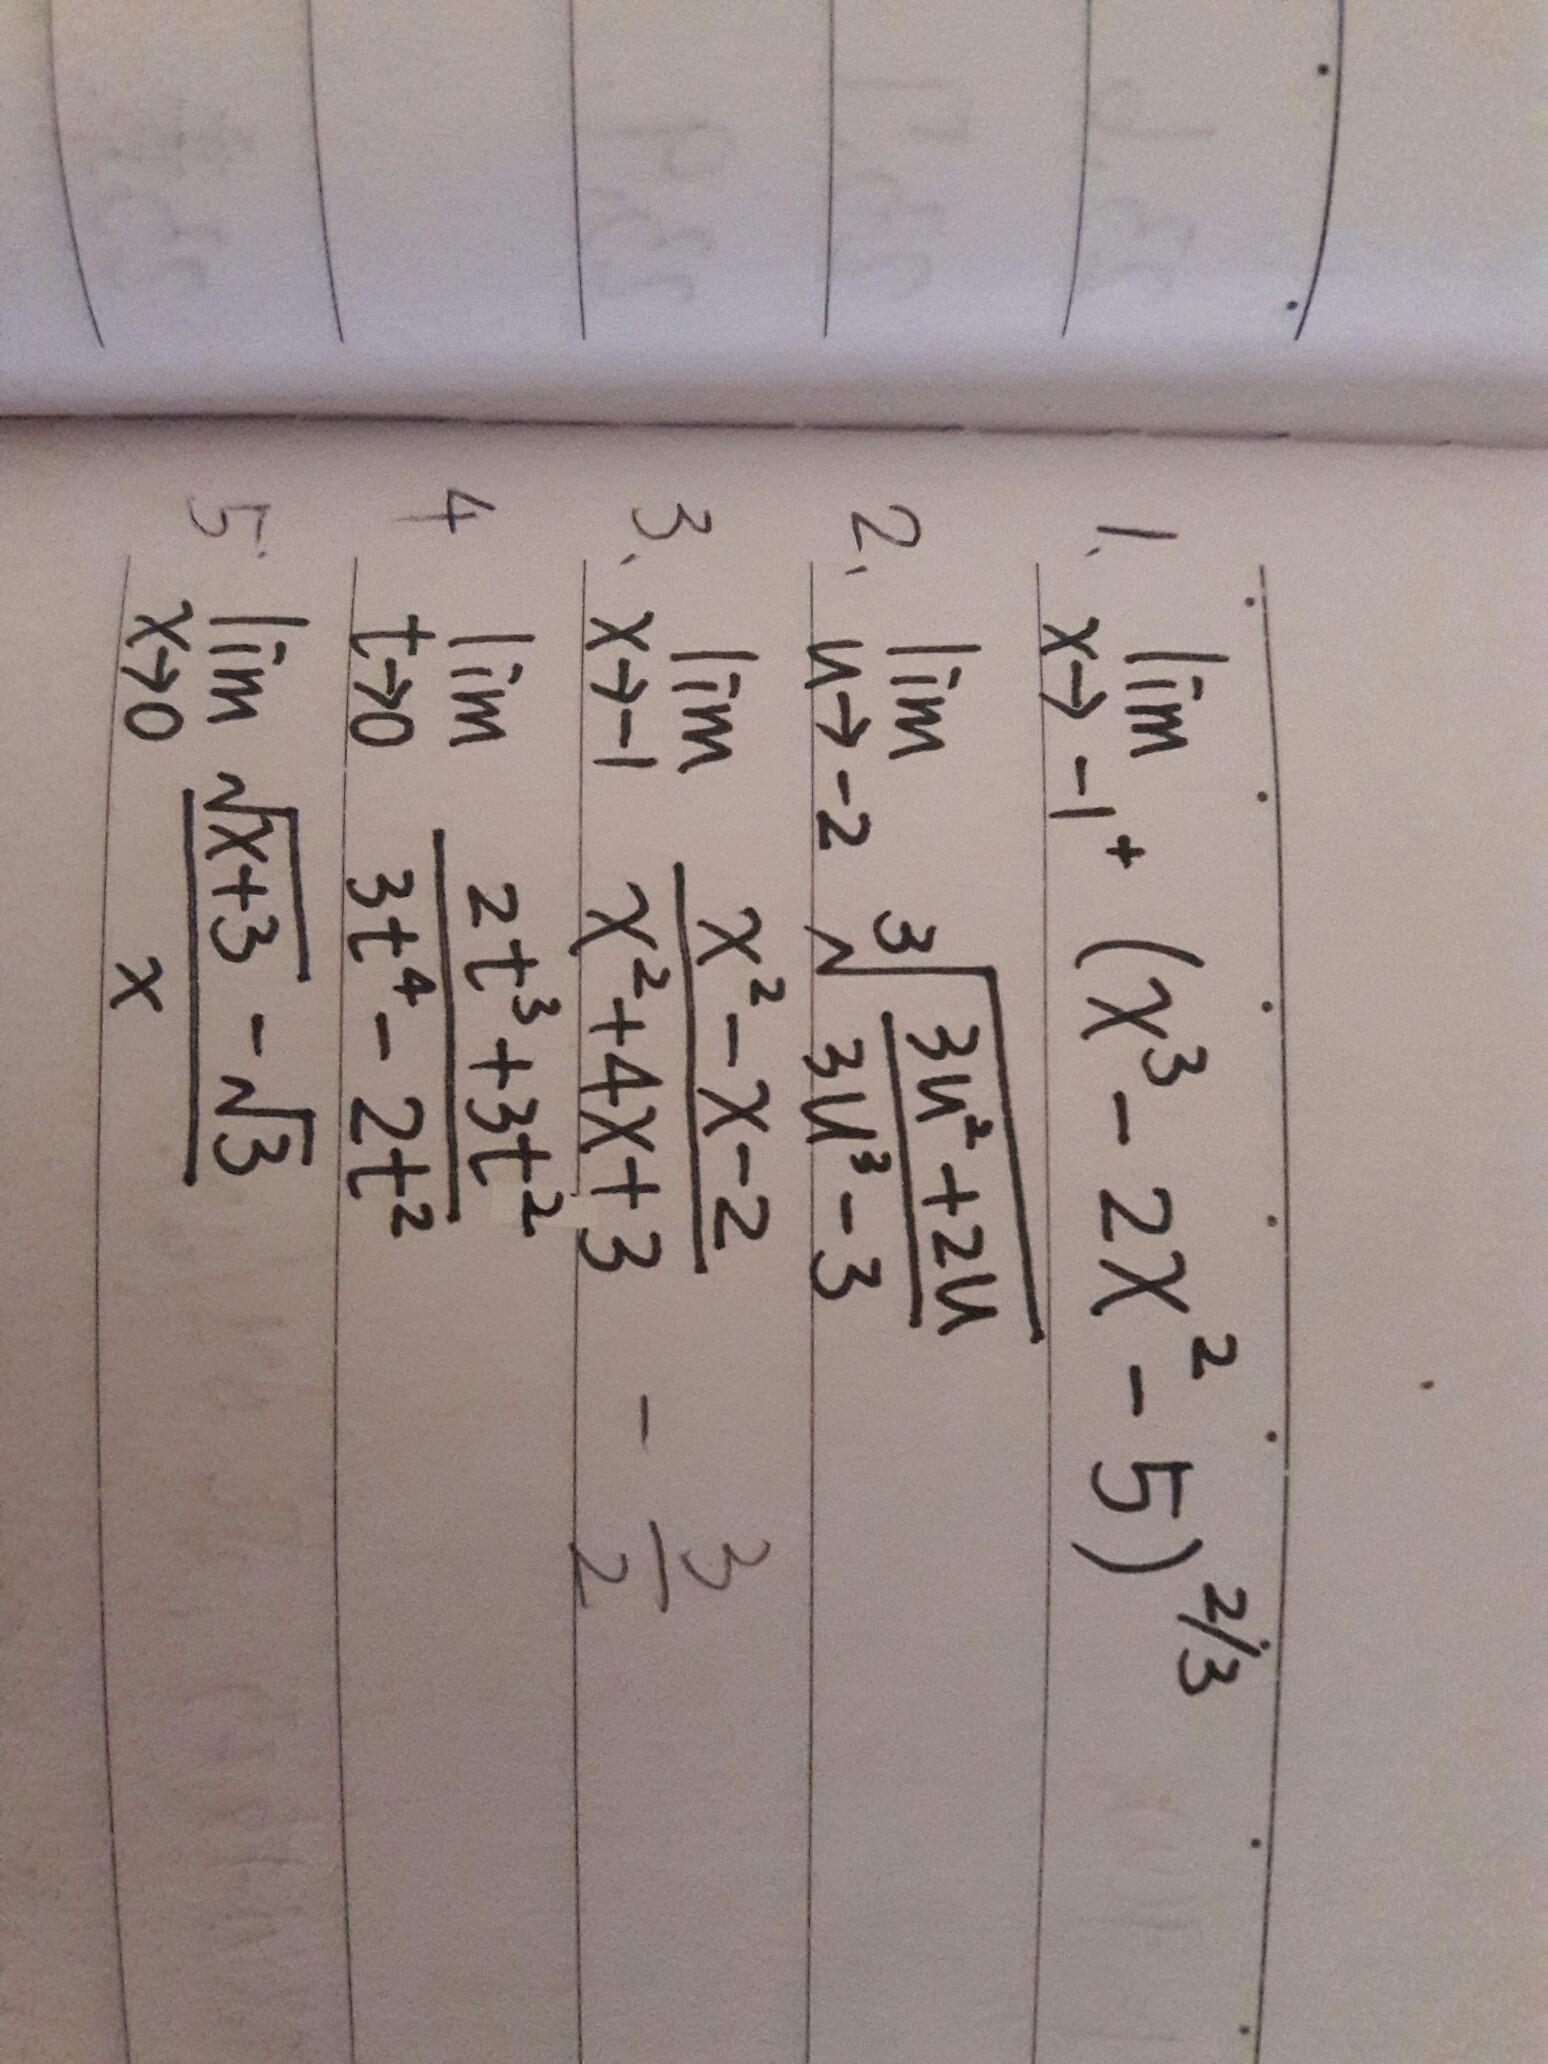 1. lim x→-1⁺ (x³ - 2x² - 5)^2/3
2. lim u→-2 ∛((3u² + 2u)/(3u³ - 3))
3. lim x→-1 (x² - x - 2)/(x² + 4x + 3) - 3/2
4 lim t→0 (2t³ + 3t²)/(3t⁴ - 2t²)
5. lim x→0 (√(x+3) - √3)/x